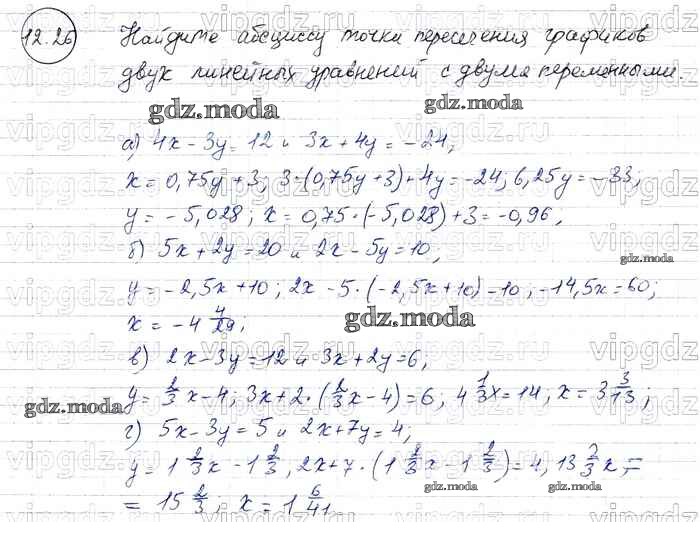 12.26 Найдите абсциссу точки пересечения графиков
двух линейных уравнений с двумя переменными.
gdz.moda
gdz.moda
а) 4x - 3y = 12 и 3x + 4y = -24;
x = 0,75y + 3; 3·(0,75y + 3) + 4y = -24; 6,25y = -33;
y = -5,028; x = 0,75·(-5,028) + 3 = -0,96,
б) 5x + 2y = 20 и 2x - 5y = 10,
gdz.moda
y = -2,5x + 10; 2x - 5·(-2,5x + 10) - 10; -14,5x = 60;
x = -4 4/29;
gdz.moda
в) 2x - 3y = 12 и 3x + 2y = 6,
y = 2/3 x - 4; 3x + 2·(2/3 x - 4) = 6; 4 1/3 x = 14; x = 3 3/13;
gdz.moda
г) 5x - 3y = 5 и 2x + 7y = 4;
y = 1 2/3 x - 1 2/3, 2x + 7·(1 2/3 x - 1 2/3) = 4, 13 2/3 x =
= 15 2/3; x = 1 6/41.
gdz.moda
gdz.moda
gdz.moda